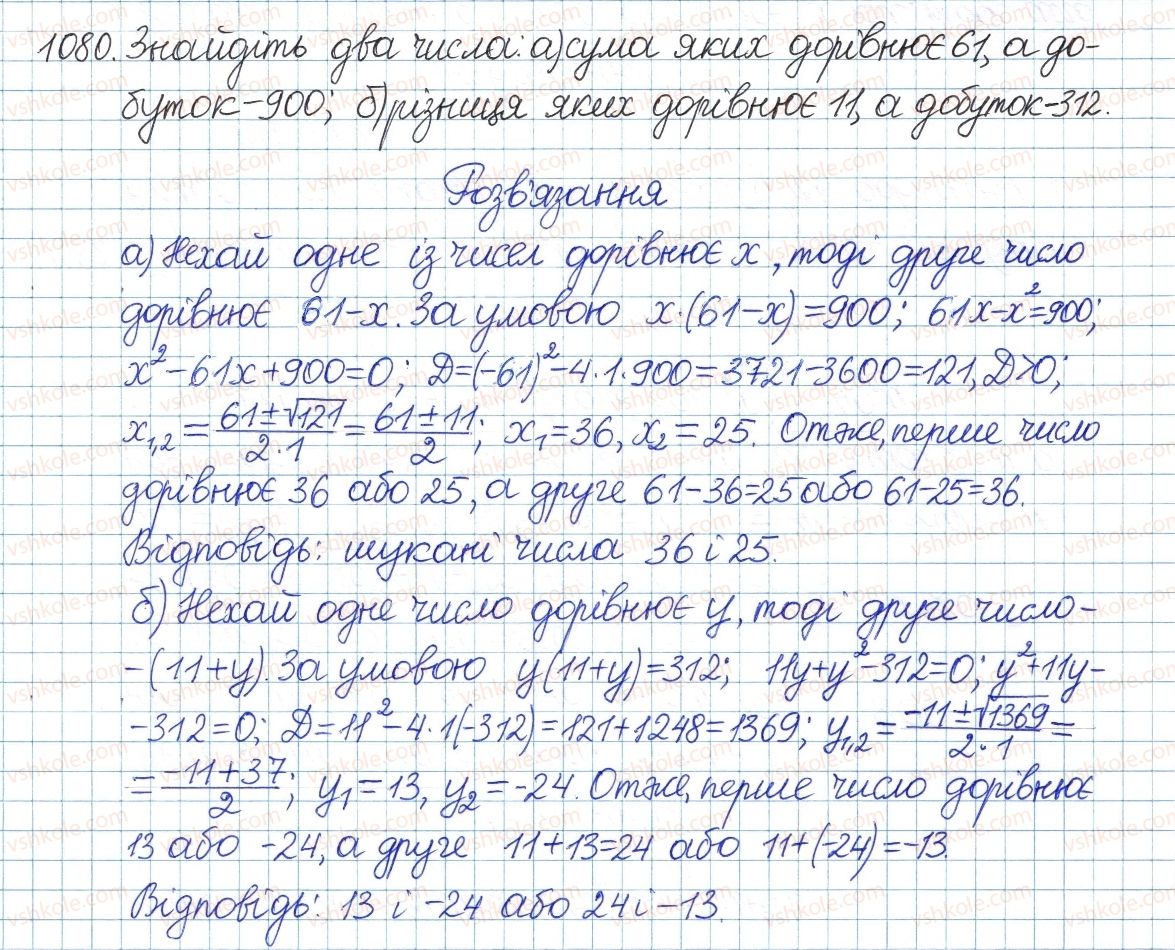 1080. Знайдіть два числа: а) сума яких дорівнює 61, а до-
буток - 900; б) різниця яких дорівнює 11, а добуток - 312.
Розв'язання
а) Нехай одне із чисел дорівнює x, тоді друге число
дорівнює 61-x. За умовою x·(61-x)=900; 61x-x²=900;
x²-61x+900=0; D=(-61)²-4·1·900=3721-3600=121, D>0;
x₁,₂ = (61±√121)/(2·1) = (61±11)/2; x₁=36, x₂=25. Отже, перше число
дорівнює 36 або 25, а друге 61-36=25 або 61-25=36.
Відповідь: шукані числа 36 і 25.
б) Нехай одне число дорівнює y, тоді друге число -
- (11+y). За умовою y(11+y)=312; 11y+y²-312=0; y²+11y-
-312=0; D=11²-4·1(-312)=121+1248=1369; y₁,₂ = (-11±√1369)/(2·1) =
= (-11+37)/2; y₁=13, y₂=-24. Отже, перше число дорівнює
13 або -24, а друге 11+13=24 або 11+(-24)=-13.
Відповідь: 13 і -24 або 24 і -13.